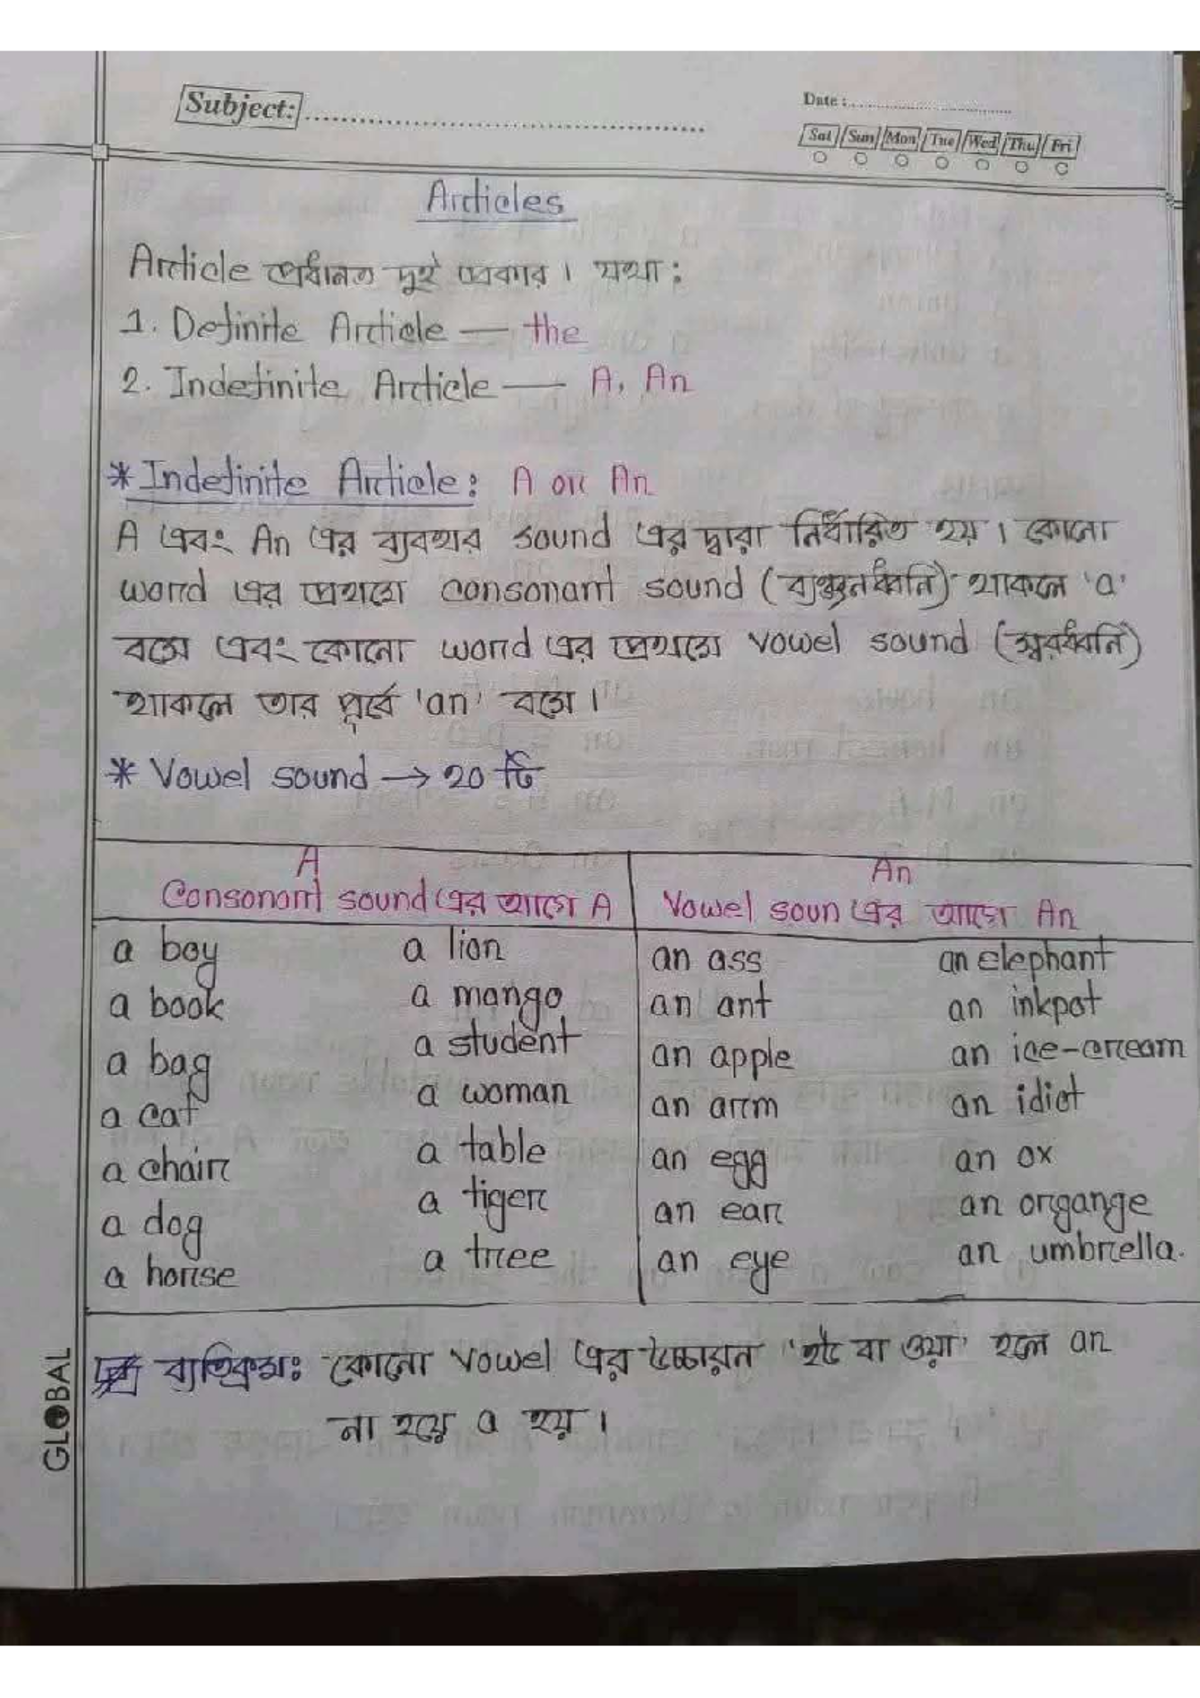 Subject:
Date :
Sat Sun Mon Tue Wed Thu Fri
Articles
Article প্রধানত দুই প্রকার। যথা:
1. Definite Article — the
2. Indefinite Article — A, An
* Indefinite Article: A or An
A এবং An এর ব্যবহার sound এর দ্বারা নির্ধারিত হয়। কোনো
word এর প্রথমে consonant sound (ব্যঞ্জনধ্বনি) থাকলে 'a'
বসে এবং কোনো word এর প্রথমে vowel sound (স্বরধ্বনি)
থাকলে তার পূর্বে 'an' বসে।
* Vowel sound → 20 টি
A
Consonant sound এর আগে A
An
Vowel soun এর আগে An
a boy a lion an ass an elephant
a book a mango an ant an inkpot
a bag a student an apple an ice-cream
a cat a woman an arm an idiot
a chair a table an egg an ox
a dog a tiger an ear an organge
a horse a tree an eye an umbrella.
ব্যতিক্রম: কোনো vowel এর উচ্চারন 'ইউ বা ওয়া' হলে an
না হয়ে a হয়।
GLOBAL